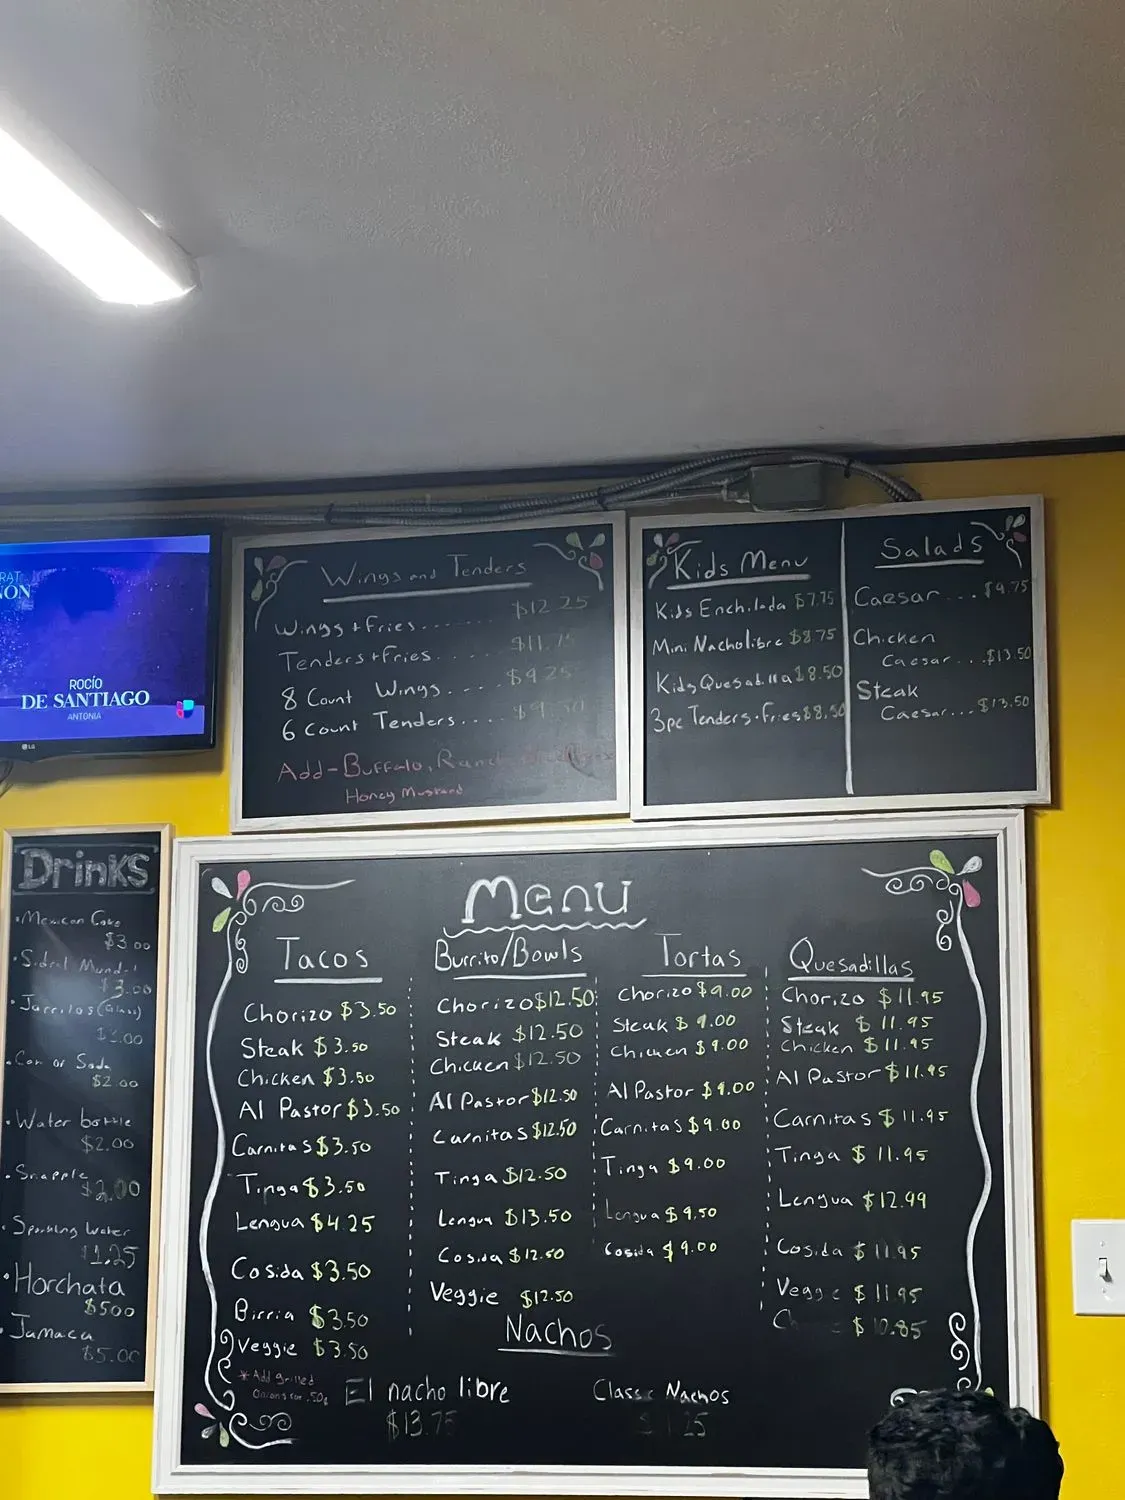 RAT
NON
ROCÍO
DE SANTIAGO
ANTONIA
LG
Wings and Tenders
Wings + Fries....... $12.25
Tenders + Fries..... $11.75
8 Count Wings.... $9.25
6 count Tenders....
Add - Buffalo, Ranch
Honey Mustard
Kids Menu
Kids Enchilada $7.75
Mini Nacholibre $8.75
Kids Quesadilla $8.50
3pc Tenders + Fries $8.50
Salads
Caesar... $9.75
Chicken
Caesar...$13.50
Steak
Caesar...$13.50
Drinks
• Mexican Coke
$3.00
• Sidral Mundet
$3.00
• Jarritos (Glass)
• Can of Soda
$2.00
• Water bottle
$2.00
• Snapple
• Sparkling Water
$1.25
• Horchata
$500
• Jamaca
$5.00
Menu
Tacos
Chorizo $3.50
Steak $3.50
Chicken $3.50
Al Pastor $3.50
Carnitas $3.50
Tinga $3.50
Lengua $4.25
Cosida $3.50
Birria $3.50
Veggie $3.50
* Add grilled
Onions for .50¢
Burrito/Bowls
Chorizo $12.50
Steak $12.50
Chicken $12.50
Al Pastor $12.50
Carnitas $12.50
Tinga $12.50
Lengua $13.50
Cosida $12.50
Veggie $12.50
Tortas
Chorizo $9.00
Steak $9.00
Chicken $9.00
Al Pastor $9.00
Carnitas $9.00
Tinga $9.00
Lengua $9.50
Cosida $9.00
Quesadillas
Chorizo $11.95
Steak $11.95
Chicken $11.95
Al Pastor $11.95
Carnitas $11.95
Tinga $11.95
Lengua $12.99
Cosida $11.95
Veggie $11.95
$10.85
Nachos
El nacho libre
$13.75
Classic Nachos